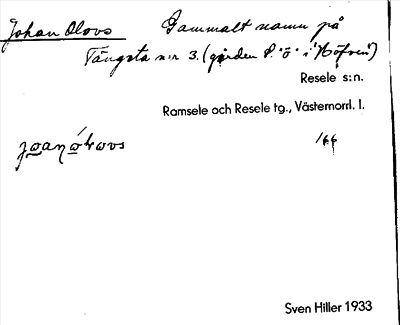 Johan Olovs Gammalt namn på
Tängsta n:r 3. (gården P. "Ö" i "Höfren")
Resele s:n.
Ramsele och Resele tg., Västernorrl. l.
166
Sven Hiller 1933